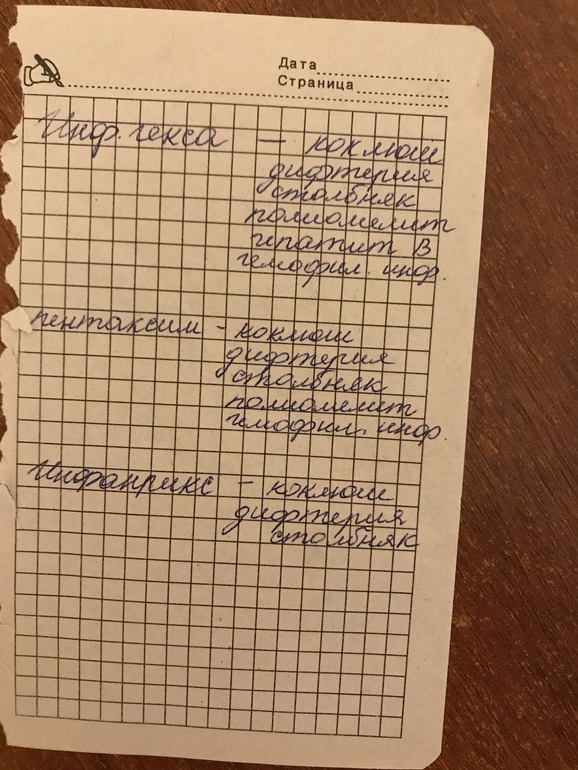 Дата
Страница
Инф. гекса – коклюш
дифтерия
столбняк
полиомелит
гепатит В
гемофил. инф.
пентаксим - коклюш
дифтерия
столбняк
полиомелит
гемофил. инф.
Инфанрикс - коклюш
дифтерия
столбняк